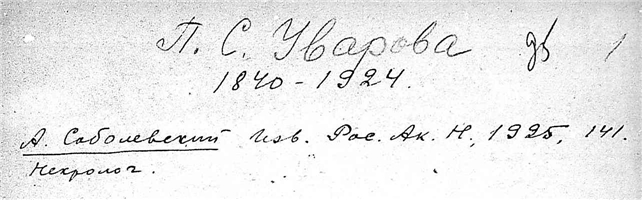 П. С. Уварова 1
1840 - 1924.
А. Соболевский Изв. Рос. Ак. Н., 1925, 141.
Некролог.